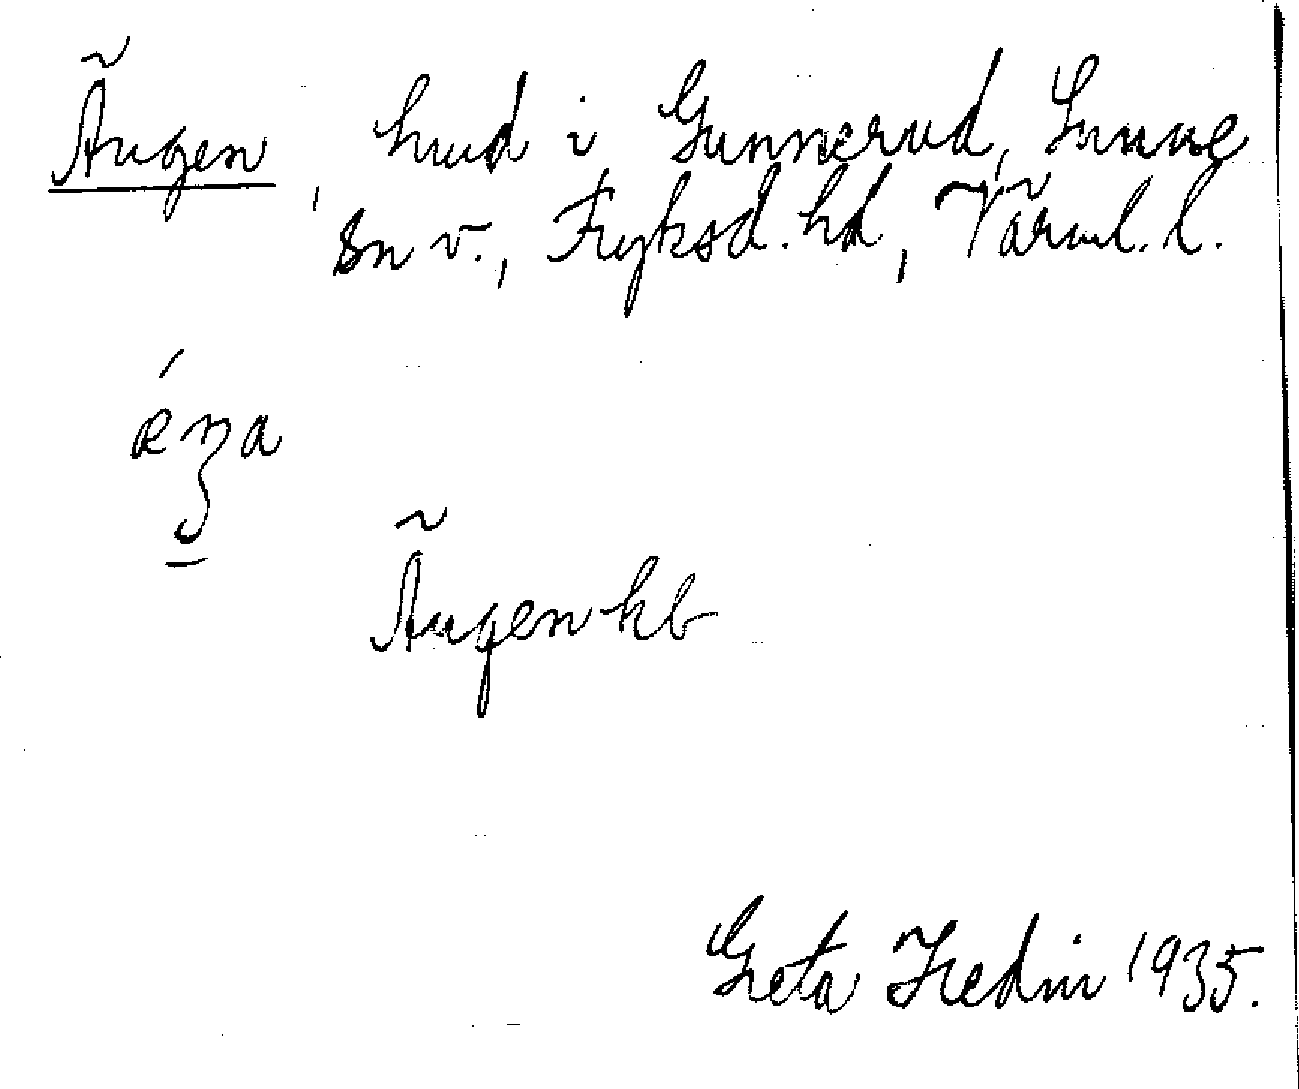 Ängen, hmd i Gunnerud, Sunne
sn v., Fryksd. hd, Värml. l.
Ängen kb
Greta Hedin 1935.